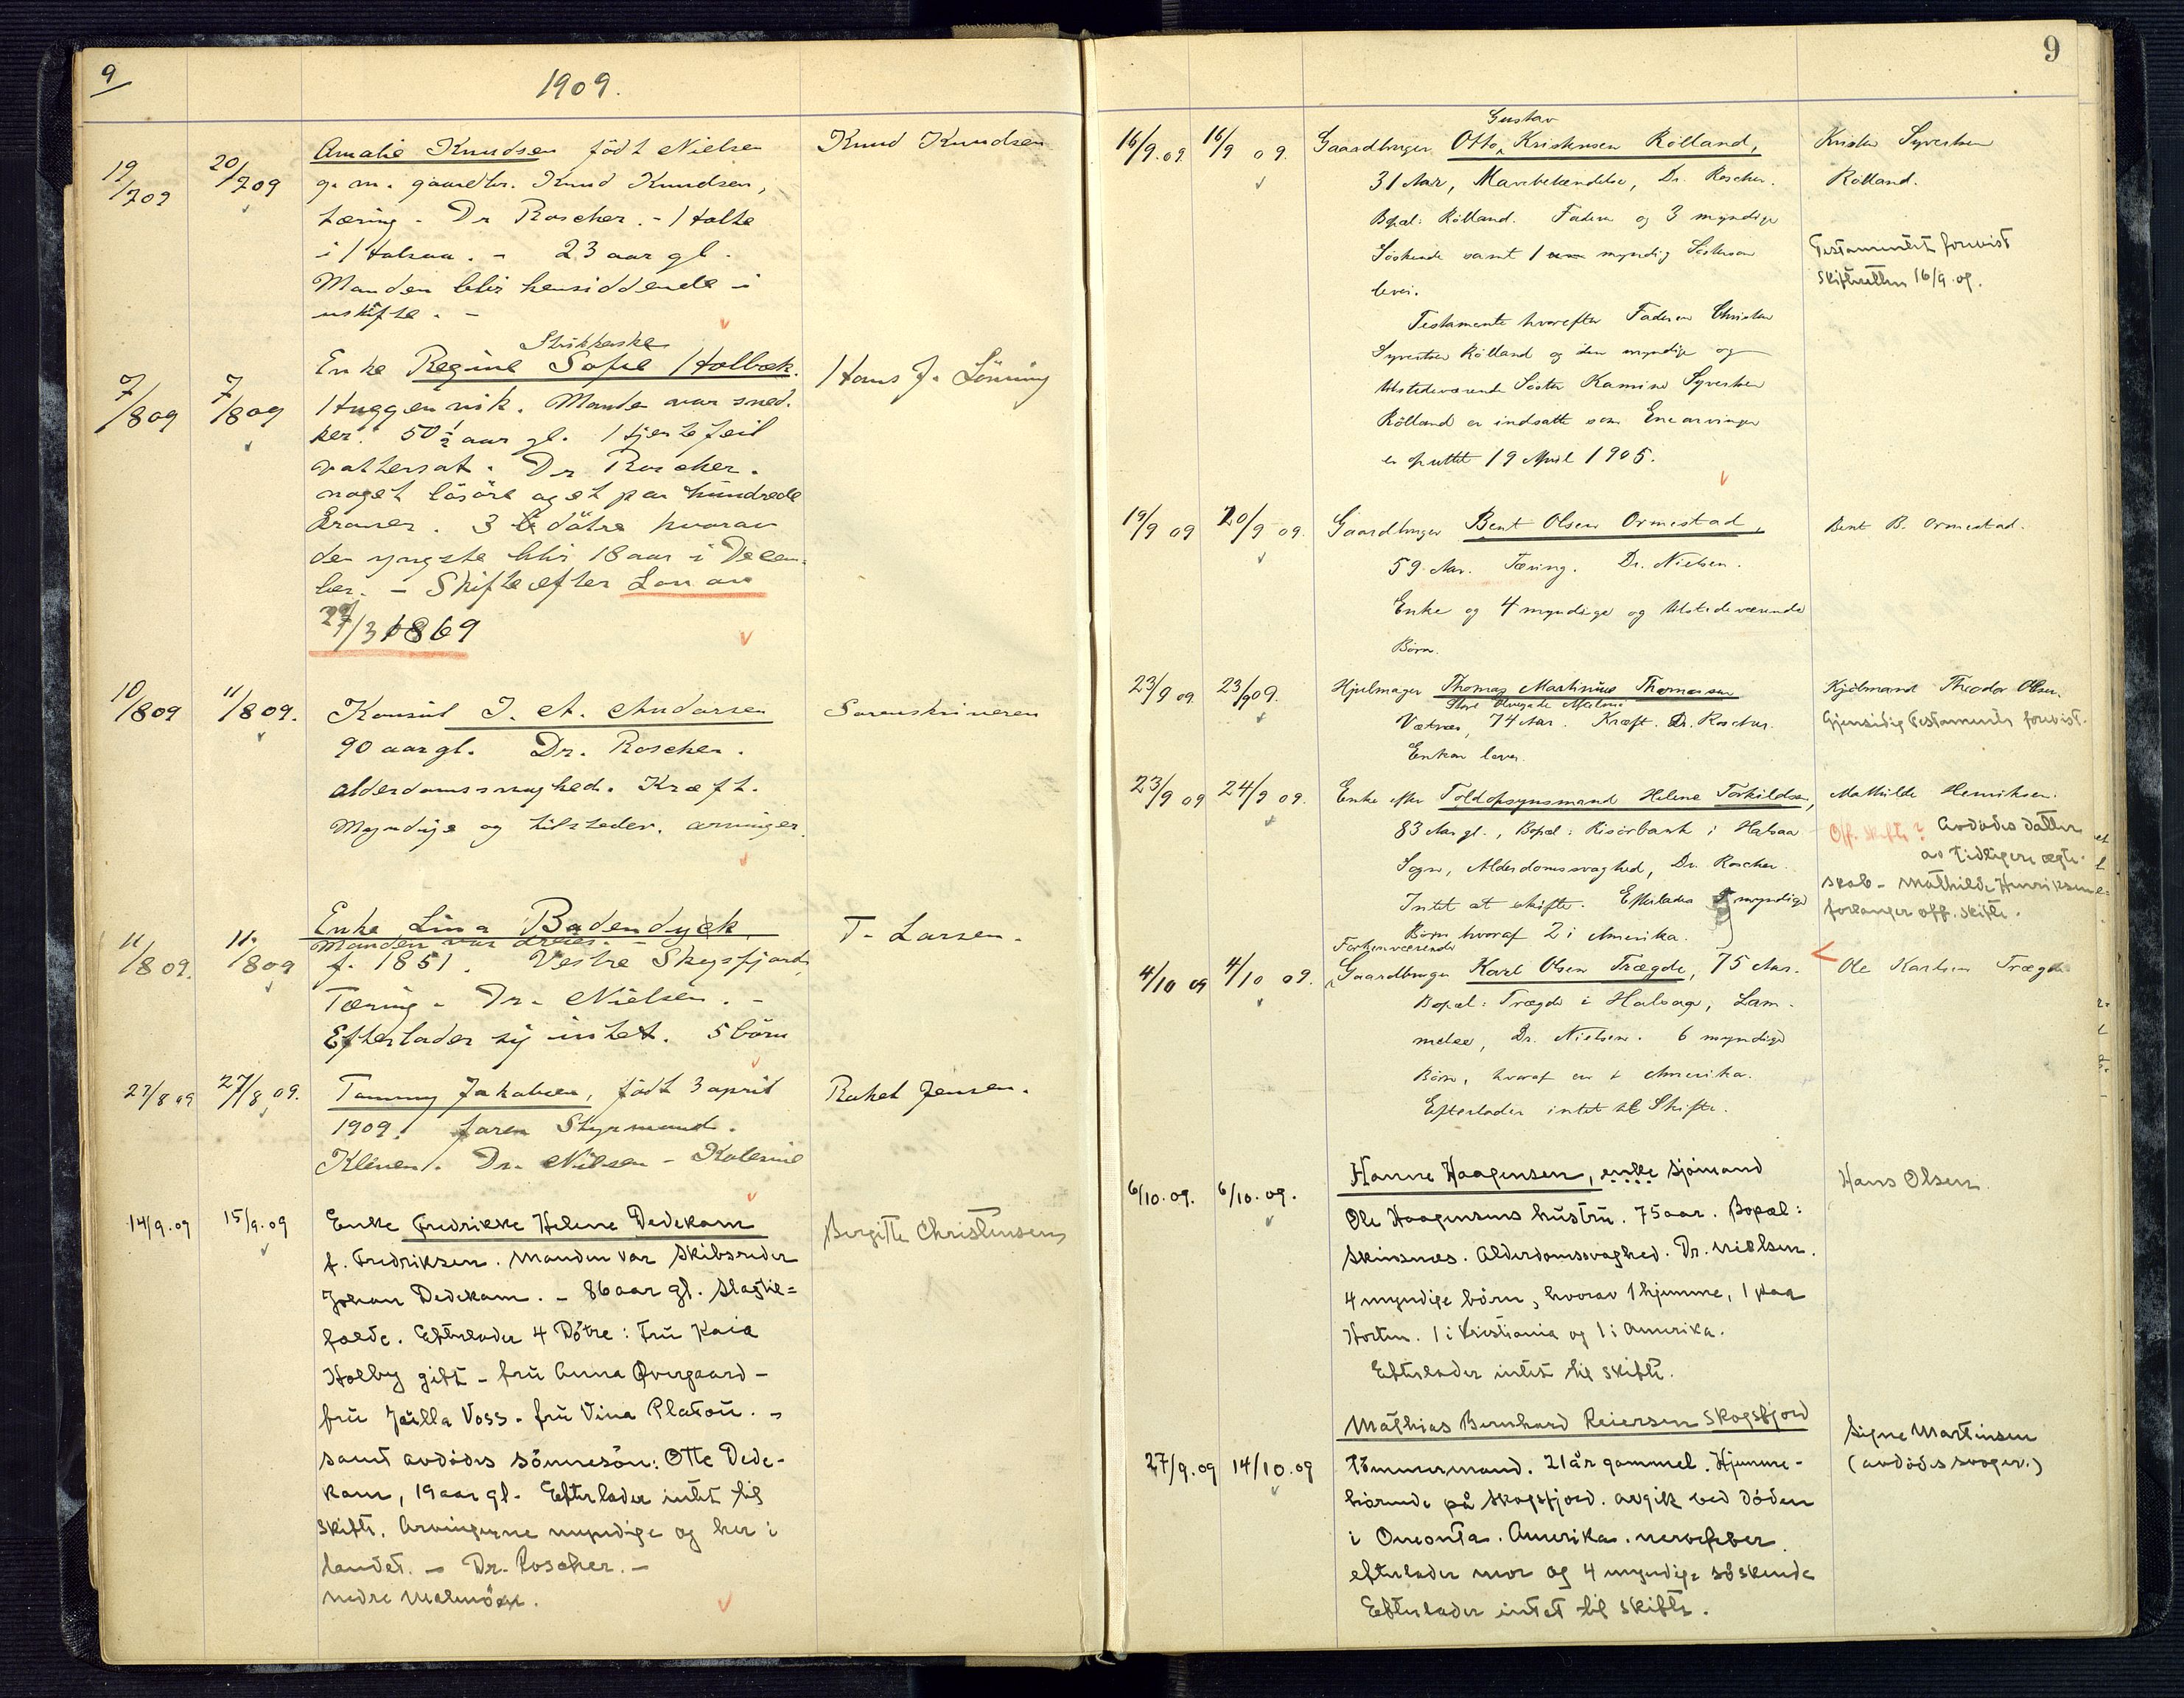 9
1909.
19/7 09 20/7 09 Amalie Knudsen født Nielsen Knud Knudsen
g. m. gaardbr. Knud Knudsen,
tæring - Dr Roscher. - Holte
i Halsaa. - 23 aar gl.
Manden blir hensiddende i
uskifte. -
Strikkerske
7/8 09 7/8 09 Enke Regine Sofie Holbæk. Hans J. Lönning
Huggenvik. Manden var sned-
ker. 50½ aar gl. Hjertefeil
vattersot. Dr Roscher.
noget lösöre og et par hundrede
kroner. 3 døtre hvorav
den yngste blir 18 aar i Decem-
ber. - Skifte efter Lov av
/3 1869
10/8 09 11/8 09. Konsul J. A. Andorsen Sorenskriveren
90 aar gl. Dr. Roscher.
alderdomssvaghed. Kræft.
Myndige og tilstedev. arvinger.
11/8 09. 11/8 09 Enke Lina Badendyck T. Larsen.
Manden var dreier. -
f. 1851. Vestre Skogsfjord
Tæring - Dr. Nielsen. -
Efterlader sig intet. 5 börn
27/8 09 27/8 09. Tammy Jakobsen, født 3 april Rakel Jensen.
1909. faren Styrmand.
Kleven. Dr. Nielsen - Kolerine
14/9.09 15/9.09 Enke Fredrikke Helene Dedekam Birgitte Christensen
f. Fredriksen. Manden var Skibsreder
Johan Dedekam. - 86 aar gl. Slagtil=
fælde. Efterlader 4 Døtre: Fru Kaia
Holby gift - fru Anna Øvergaard -
fru Julla Voss - fru Vina Platou. -
samt avdødes sönnesön: Otto Dede-
kam, 19 aar gl. Efterlader intet til
skifte. Arvingerne myndige og her i
landet. - Dr. Roscher. -
nedre Malmöen.
9
Gustav
16/9. 09 16/9 09. Gaardbruger Otto Kristensen Rölland, Krister Syvertsen
31 Aar, Mavebetændelse, Dr. Roscher. Rölland.
Bopæl: Rölland. Faderen og 3 myndige
Söskende samt 1 myndig Söstersön Testamentet forevist
lever. Skifteretten 16/9.09.
Testamente hvorefter Faderen Christen
Syvertsen Rölland og den myndige og
tilstedeværende Söster Kamine Syvertsen
Rölland er indsatte som Enearvinger
er oprettet 19 April 1905.
19/9 09 20/9 09. Gaardbruger Bent Olsen Ormestad, Bent B. Ormestad.
59 Aar. Tæring. Dr. Nielsen.
Enke og 4 myndige og tilstedeværende
Börn.
23/9 09 23/9 09. Hjulmager Thomas Martinius Thomassen Kjölmand Theodor Olsen.
Vatnes, 74 Aar. Kræft. Dr. Roscher. Gjensidig Testamente forevist.
Enken lever.
23/9 09 24/9 09. Enke efter Toldopsynsmand Helene Torkildsen, Mathilde Henriksen.
83 Aar gl., Bopæl: Risörbank i Halsaa Off. skifte? Avdødes datter
Sogn, Alderdomssvaghed, Dr. Roscher. av tidligere ægte-
Intet at skifte. Efterlader 5 myndige skab - Mathilde Henriksen
Börn hvoraf 2 i Amerika. forlanger off. skifte.
Forhenværende
4/10 09 4/10 09. Gaardbruger Karl Olsen Trægde, 75 Aar. Ole Karlsen Trægde
Bopæl: Trægde i Halsaa, Lam-
melse, Dr. Nielsen. 6 myndige
Börn, hvoraf en i Amerika.
Efterlader intet til Skifte.
6/10.09. 6/10.09. Hanne Haagensen, enke sjömand Hans Olsen
Ole Haagensens hustru. 75 aar. Bopæl:
Skinsnes. Alderdomssvaghed. Dr. Nielsen.
4 myndige börn, hvorav 1 hjemme, 1 paa
Horten. 1 i Kristiania og 1 i Amerika.
Efterlader intet til skifte.
27/9.09 14/10.09 Mathias Bernhard Reiersen Skogsfjord Signe Martinsen
tömmermand. 21 år gammel. Hjemme- (avdødes svoger.)
hörende på Skogsfjord. avgik ved döden
i Oneonta. Amerika. nervefeber.
efterlader mor og 4 myndige söskende
Efterlader intet til skifte.